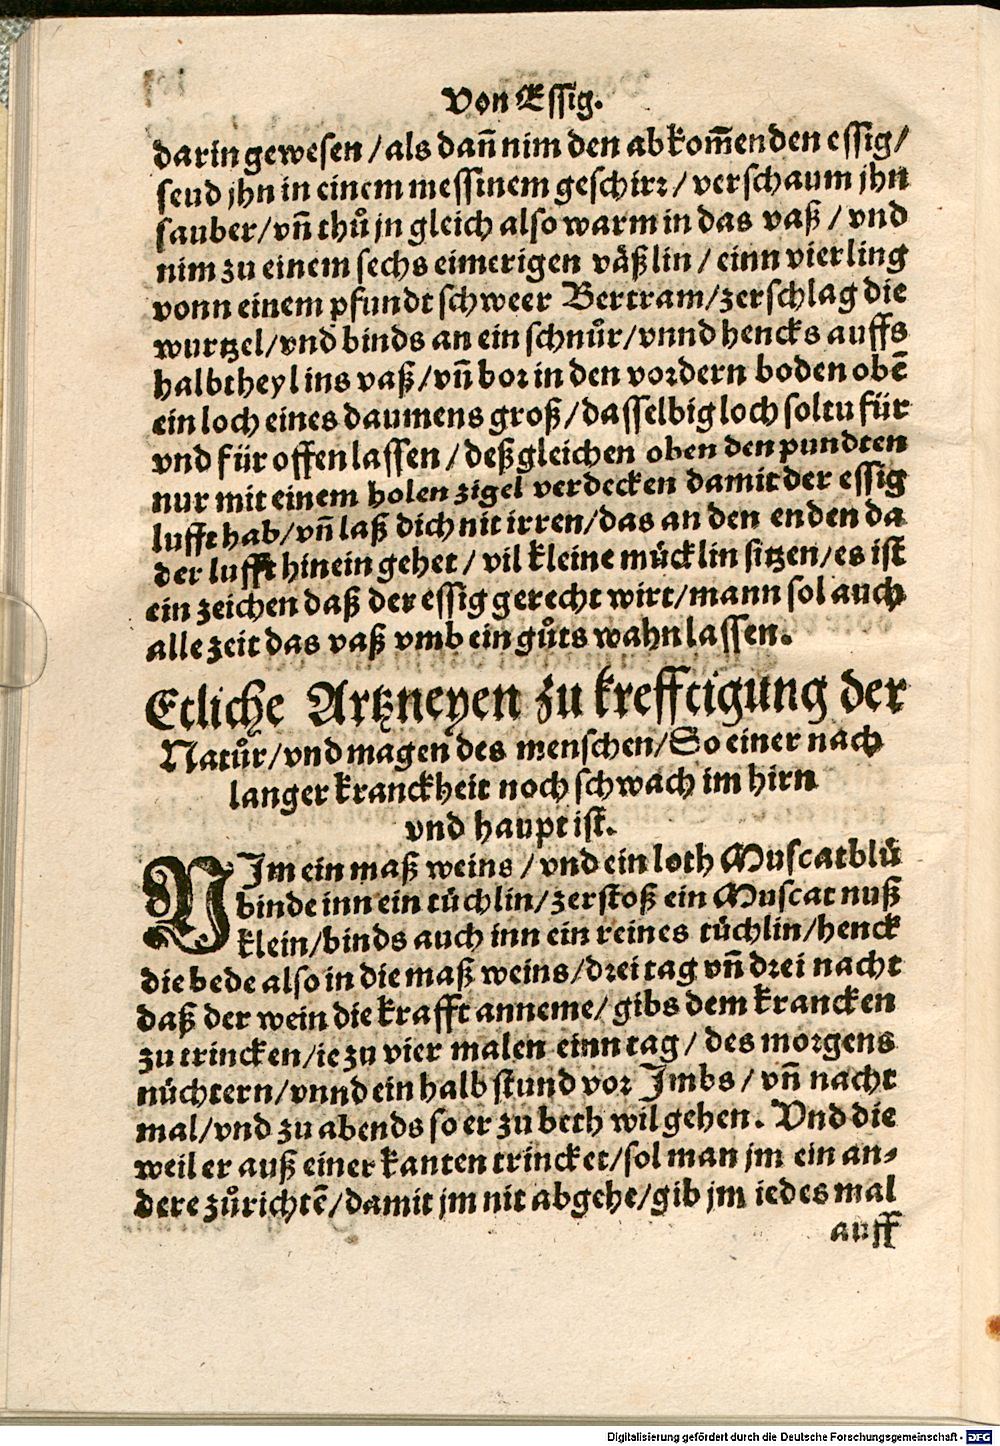 Von Essig.
darin gewesen / als dañ nim den abkom̃enden essig /
seud jhn in einem messinem geschirr / verschaum jhn
sauber / vñ thů jn gleich also warm in das vaß / vnd
nim zu einem sechs eimerigen väßlin / einn vierling
vonn einem pfundt schweer Bertram / zerschlag die
wurtzel / vnd binds an ein schnůr / vnnd hencks auffs
halbtheyl ins vaß / vñ bor in den vordern boden obẽ
ein loch eines daumens groß / dasselbig loch soltu für
vnd für offen lassen / deßgleichen oben den pundten
nur mit einem holen zigel verdecken damit der essig
lufft hab / vñ laß dich nit irren / das an den enden da
der lufft hinein gehet / vil kleine mücklin sitzen / es ist
ein zeichen daß der essig gerecht wirt / mann sol auch
alle zeit das vaß vmb ein gůts wahn lassen.
Etliche Artzneyen zu krefftigung der
Natůr / vnd magen des menschen / So einer nach
langer kranckheit noch schwach im hirn
vnd haupt ist.
NIm ein maß weins / vnd ein loth Muscatblů
binde inn ein tüchlin / zerstoß ein Muscat nuß
klein / binds auch inn ein reines tüchlin / henck
die bede also in die maß weins / drei tag vñ drei nacht
daß der wein die krafft anneme / gibs dem krancken
zu trincken / ie zu vier malen einn tag / des morgens
nüchtern / vnnd ein halb stund vor Imbs / vñ nacht
mal / vnd zu abends so er zu beth wil gehen. Vnd die
weil er auß einer kanten trincket / sol man jm ein an⸗
dere zůrichtẽ / damit jm nit abgehe / gib jm iedes mal
auff
Digitalisierung gefördert durch die Deutsche Forschungsgemeinschaft - DFG